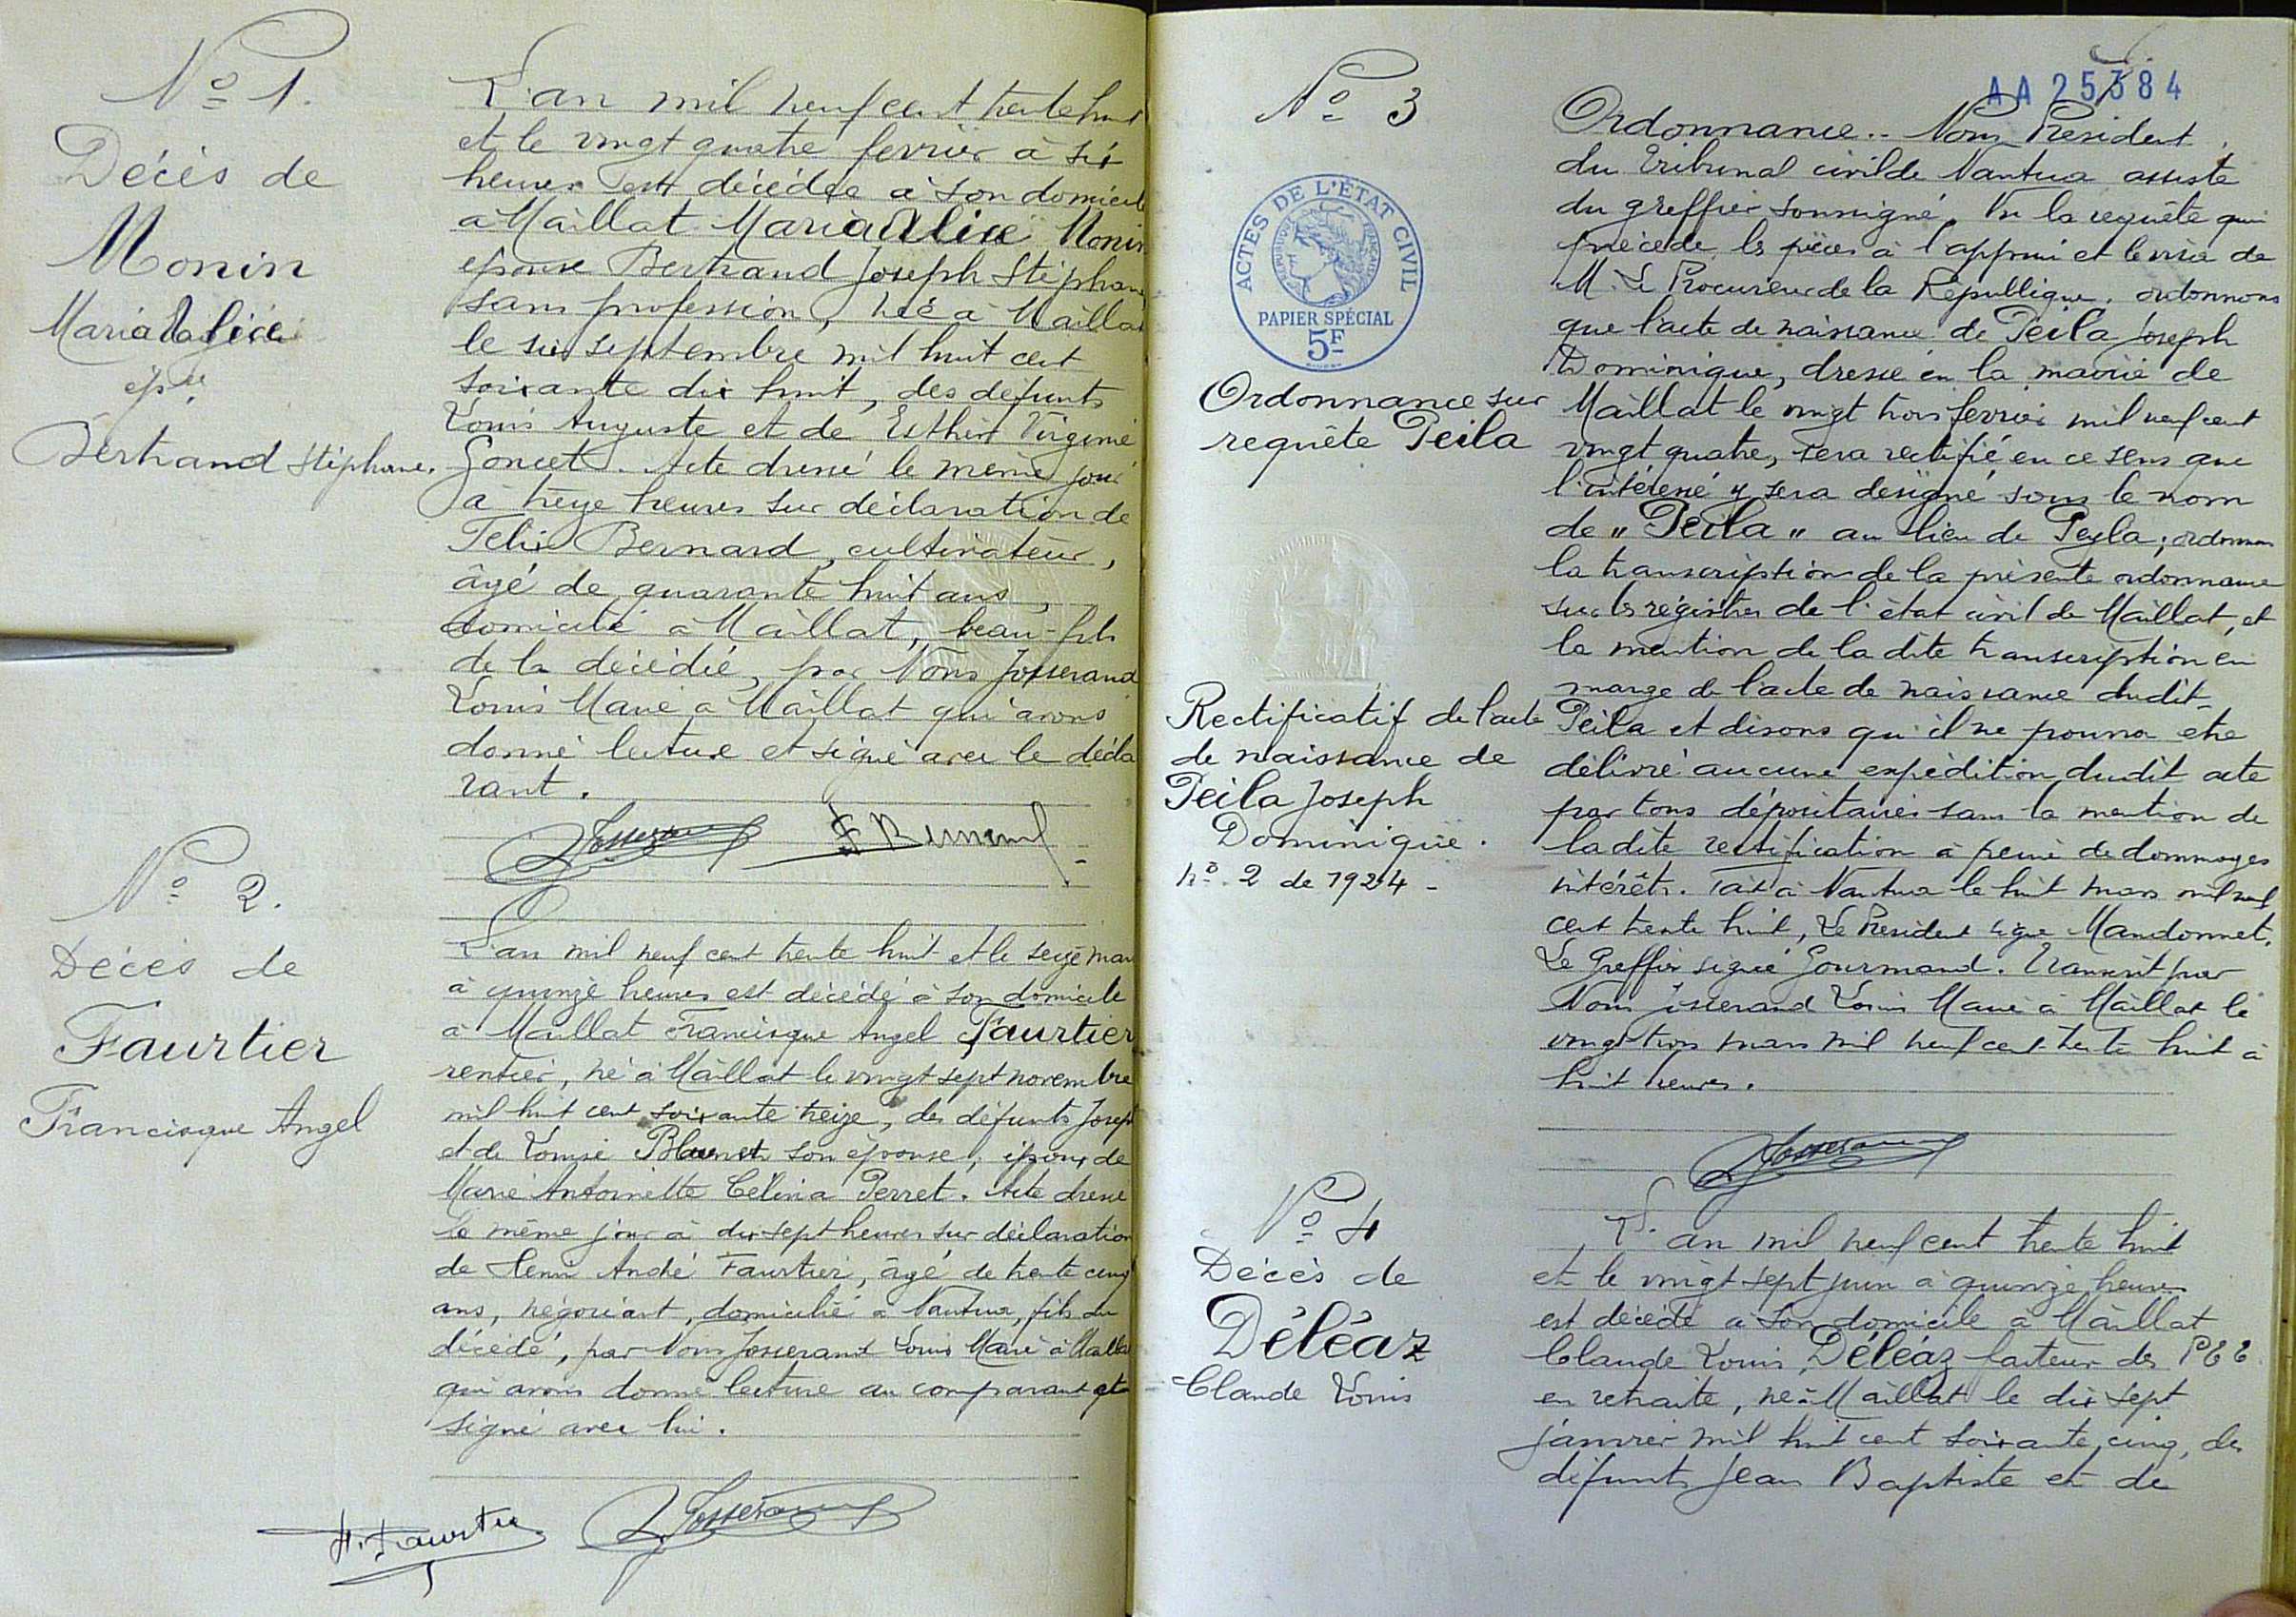 N° 1.
Décès de
Monin
Maria
épse
Bertrand Stéphane.
L'an mil neuf cent trente huit
et le vingt quatre février à six
heures est décédée à son domicile
à Maillat Maria Alice Monin
épouse Bertrand Joseph Stéphane
sans profession, née à Maillat
le six septembre mil huit cent
soixante dix huit, des défunts
Louis Auguste et de Esther Virginie
Goncet. Acte dressé le même jour
à treize heures sur déclaration de
Félix Bernard, cultivateur,
âgé de quarante huit ans,
domicilié à Maillat, beau-fils
de la décédée, par Nous Josserand
Louis Maire à Maillat qui avons
donné lecture et signé avec le décla
rant.
Josserand F Bernard
N° 2.
Décès de
Faurtier
Francisque Angel
L'an mil neuf cent trente huit et le seize mars
à quinze heures est décédé à son domicile
à Maillat Francisque Angel Faurtier
rentier, né à Maillat le vingt sept novembre
mil huit cent soixante treize, des défunts Joseph
et de Louise son épouse, époux de
Marie Antoinette Célina Perret. Acte dressé
le même jour à dix sept heures sur déclaration
de Henri André Faurtier, âgé de trente cinq
ans, négociant, domicilié à Nantua, fils du
décédé, par Nous Josserand Louis Maire à Maillat
qui avons donné lecture au comparant et
signé avec lui.
H. Faurtier Josserand
AA 25384
N° 3
ACTES DE L'ÉTAT CIVIL
PAPIER SPÉCIAL
5F
Ordonnance sur
requête Peila
Rectificatif de l'acte
de naissance de
Peila Joseph
Dominique.
n° 2 de 1924 -
Ordonnance.. Nous Président
du Tribunal civil de Nantua assisté
du greffier soussigné, Vu la requête qui
précède, les pièces à l'appui et le visa de
M. Le Procureur de la République. ordonnons
que l'acte de naissance de Peila Joseph
Dominique, dressé en la mairie de
Maillat le vingt trois février mil neuf cent
vingt quatre, sera rectifié en ce sens que
l'intéressé y sera désigné sous le nom
de "Peila" au lieu de Peyla; ordonnons
la transcription de la présente ordonnance
sur les registres de l'état civil de Maillat, et
la mention de la dite transcription en
marge de l'acte de naissance dudit
Peila et disons qu'il ne pourra être
délivré aucune expédition dudit acte
par tous dépositaires sans la mention de
ladite rectification à peine de dommages
intérêts. Fait à Nantua le huit mars mil neuf
cent trente huit, Le Président signé Mandonnet.
Le Greffier signé Gourmand. Transcrit par
Nous Josserand Louis Maire à Maillat le
vingt trois mars mil neuf cent trente huit à
huit heures.
Josserand
N° 4
Décès de
Déléaz
Claude Louis
L'an mil neuf cent trente huit
et le vingt sept juin à quinze heures
est décédé à son domicile à Maillat
Claude Louis Déléaz facteur des PTT
en retraite, né à Maillat le dix sept
janvier mil huit cent soixante cinq, des
défunts Jean Baptiste et de